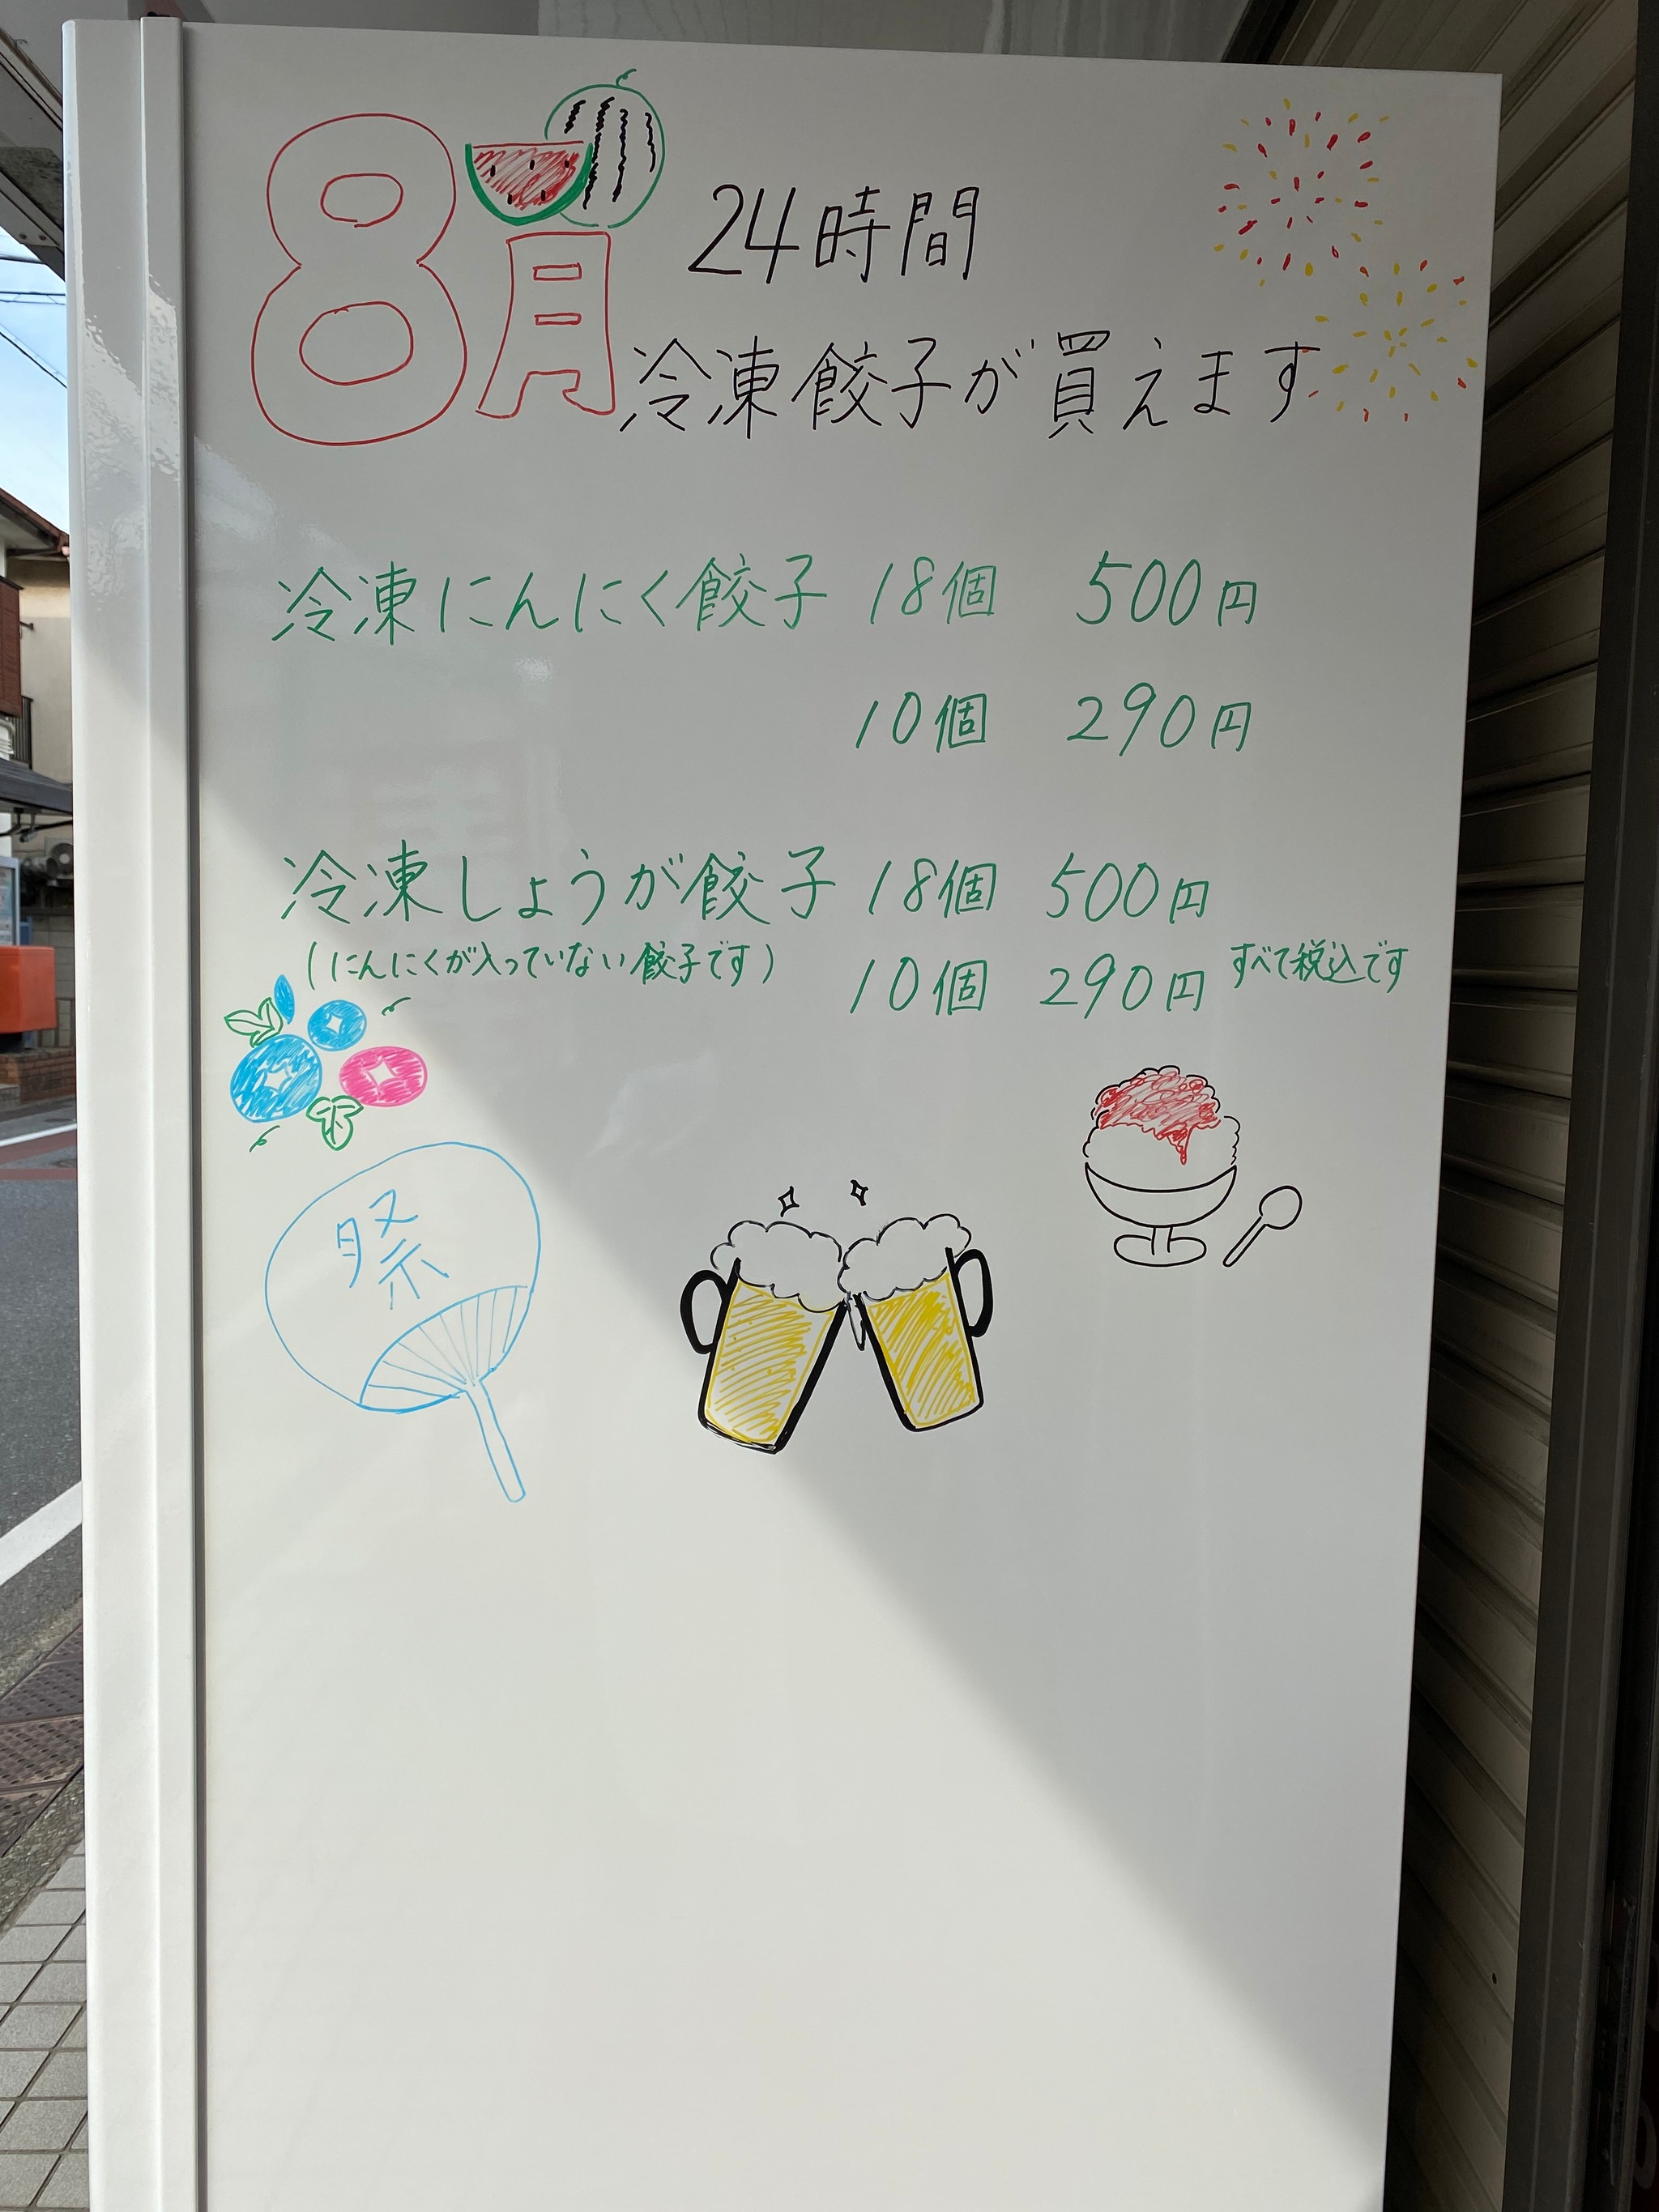 8月
24時間
冷凍餃子が買えます
冷凍にんにく餃子 18個 500円
10個 290円
冷凍しょうが餃子 18個 500円
(にんにくが入っていない餃子です)
10個 290円 すべて税込です
祭